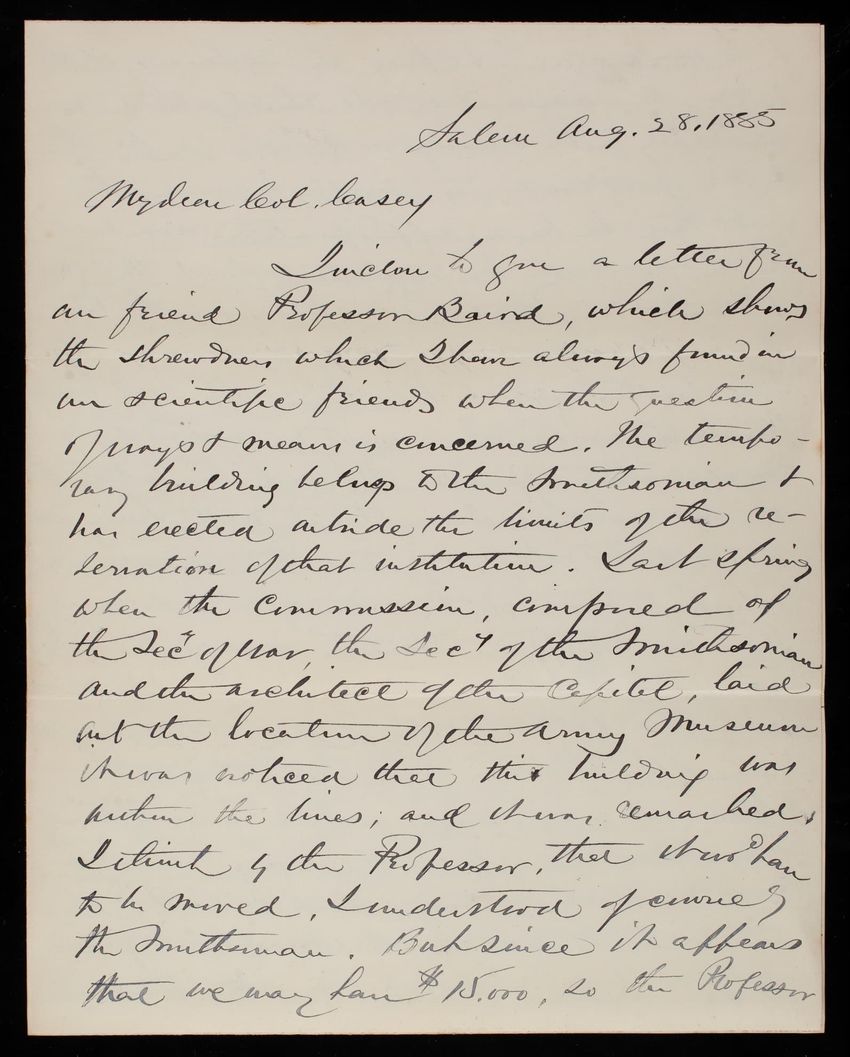 Salem Aug. 28, 1885
My dear Col. Casey
I inclose to you a letter from
our friend Professor Baird, which shows
the shrewdness which I have always found in
our scientific friends when the question
of ways & means is concerned. The tempo-
rary building belongs to the Smithsonian &
has erected outside the limits of the re-
servation of that institution. Last spring
when the Commission, composed of
the Secy of War, the Secy of the Smithsonian
and the architect of the Capitol, laid
out the location of the Army Museum
it was noticed that this building was
within the lines; and it was remarked,
I think by the Professor, that it wod have
to be moved, I understood of course by
the Smithsonian. But since it appears
that we may have $15.000, so the Professor